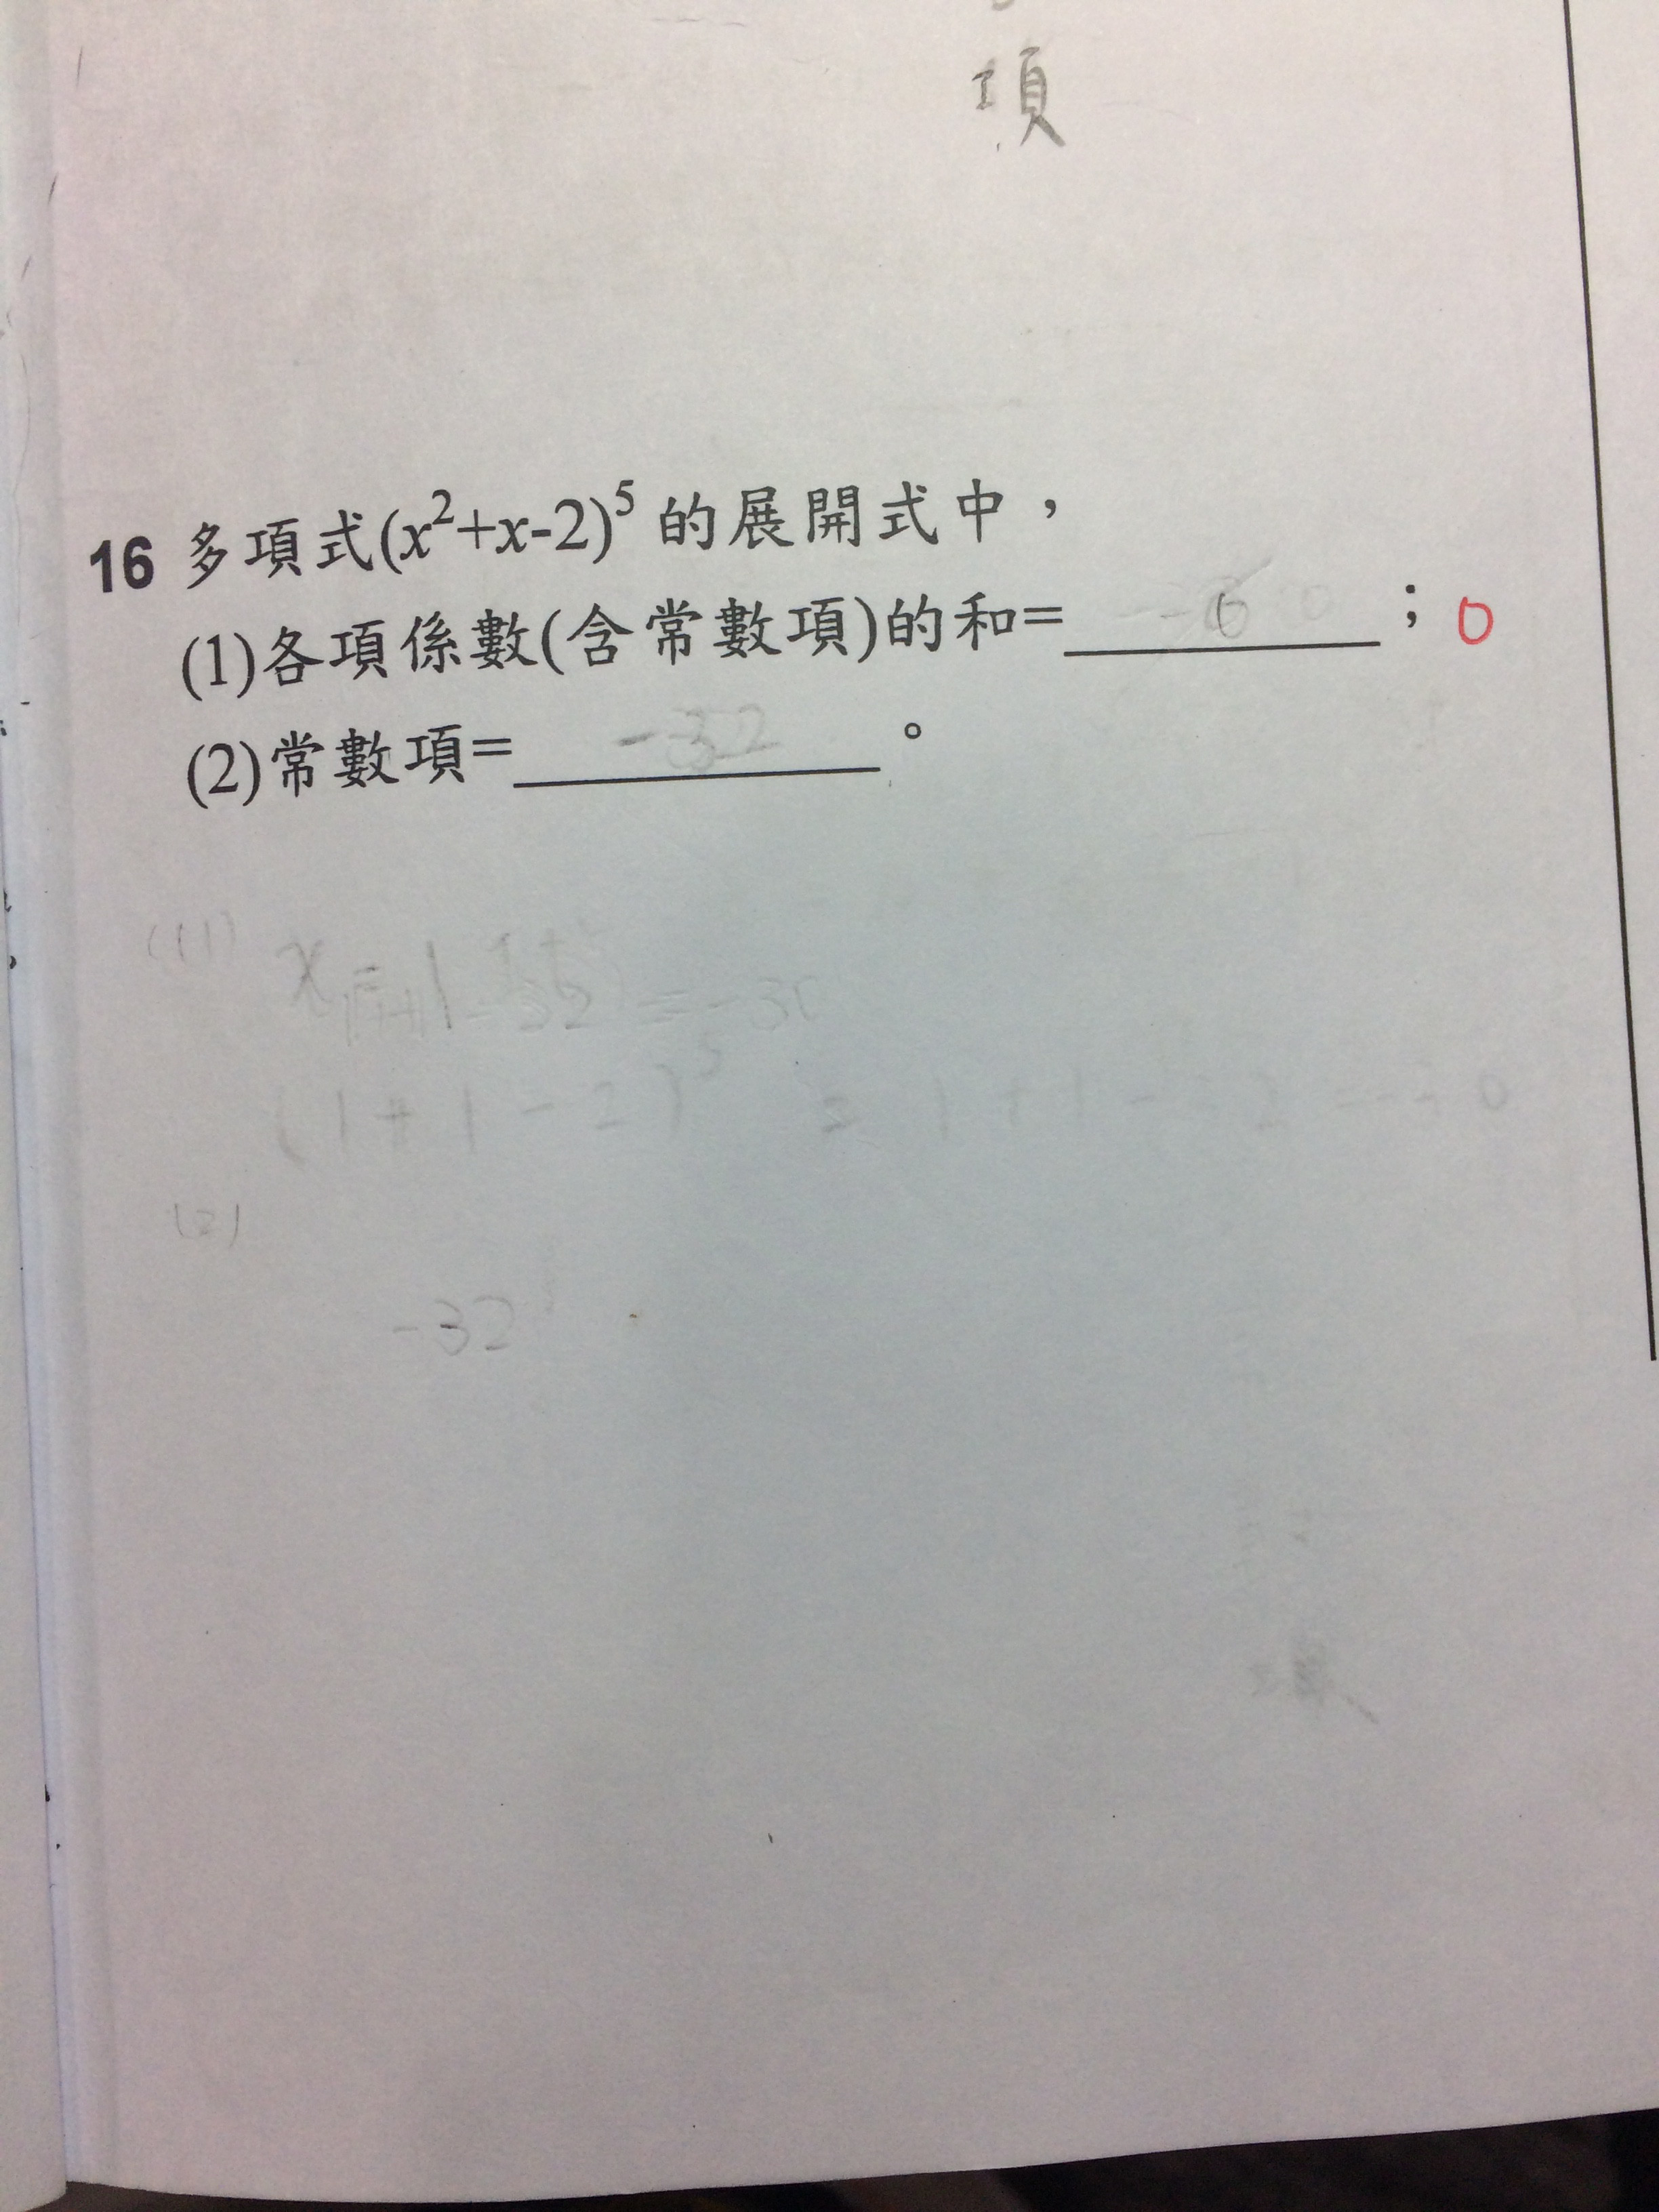 項
16 多項式(x²+x-2)⁵ 的展開式中，
(1)各項係數(含常數項)的和= 0 ； 0
(2)常數項= -32 。
(1)
x=1
(1+1-2)⁵ = 1+1-2 = 0
(2)
-32